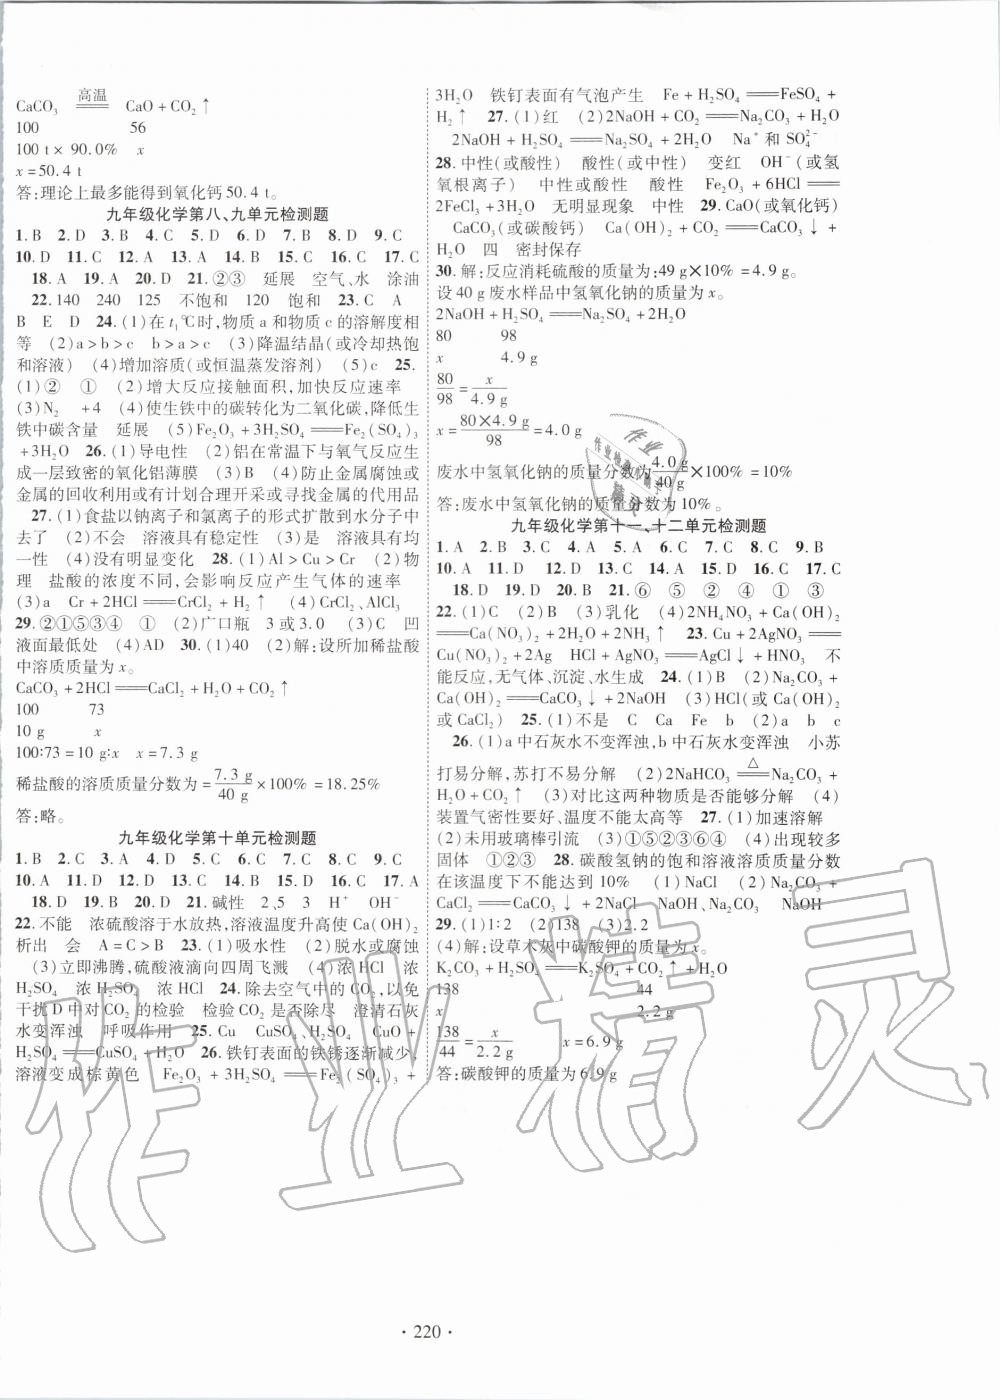 高温
CaCO₃ ═══ CaO+CO₂↑
100 56
100 t×90.0% x
x=50.4 t
答:理论上最多能得到氧化钙50.4 t。
九年级化学第八、九单元检测题
1.B 2.D 3.B 4.C 5.A 6.B 7.B 8.D 9.C
10.D 11.C 12.A 13.A 14.B 15.C 16.C 17.C
18.A 19.A 20.D 21.②③ 延展 空气、水 涂油
22.140 240 125 不饱和 120 饱和 23.C A
B E D 24.(1)在t₁℃时,物质a和物质c的溶解度相
等 (2)a>b>c b>a>c (3)降温结晶(或冷却热饱
和溶液) (4)增加溶质(或恒温蒸发溶剂) (5)c 25.
(1)② ① (2)增大反应接触面积,加快反应速率
(3)N₂ +4 (4)使生铁中的碳转化为二氧化碳,降低生
铁中碳含量 延展 (5)Fe₂O₃+3H₂SO₄═══Fe₂(SO₄)₃
+3H₂O 26.(1)导电性 (2)铝在常温下与氧气反应生
成一层致密的氧化铝薄膜 (3)B (4)防止金属腐蚀或
金属的回收利用或有计划合理开采或寻找金属的代用品
27.(1)食盐以钠离子和氯离子的形式扩散到水分子中
去了 (2)不会 溶液具有稳定性 (3)是 溶液具有均
一性 (4)没有明显变化 28.(1)Al>Cu>Cr (2)物
理 盐酸的浓度不同,会影响反应产生气体的速率
(3)a Cr+2HCl═══CrCl₂+H₂↑ (4)CrCl₃、AlCl₃
29.②①⑤③④ ① (2)广口瓶 3或3.0 (3)C 凹
液面最低处 (4)AD 30.(1)40 (2)解:设所加稀盐酸
中溶质质量为x。
CaCO₃+2HCl═══CaCl₂+H₂O+CO₂↑
100 73
10 g x
100:73=10 g:x x=7.3 g
稀盐酸的溶质质量分数为=7.3 g/40 g×100%=18.25%
答:略。
九年级化学第十单元检测题
1.B 2.C 3.A 4.D 5.B 6.C 7.B 8.C 9.C
10.A 11.D 12.A 13.D 14.B 15.D 16.C 17.A
18.D 19.D 20.D 21.碱性 2,5 3 H⁺ OH⁻
22.不能 浓硫酸溶于水放热,溶液温度升高使Ca(OH)₂
析出 会 A=C>B 23.(1)吸水性 (2)脱水或腐蚀
(3)立即沸腾,硫酸液滴向四周飞溅 (4)浓HCl 浓
H₂SO₄ 浓H₂SO₄ 浓HCl 24.除去空气中的CO₂,以免
干扰D中对CO₂的检验 检验CO₂是否除尽 澄清石灰
水变浑浊 呼吸作用 25.Cu CuSO₄、H₂SO₄ CuO+
H₂SO₄═══CuSO₄+H₂O 26.铁钉表面的铁锈逐渐减少,
溶液变成棕黄色 Fe₂O₃+3H₂SO₄═══Fe₂(SO₄)₃+
3H₂O 铁钉表面有气泡产生 Fe+H₂SO₄═══FeSO₄+
H₂↑ 27.(1)红 (2)2NaOH+CO₂═══Na₂CO₃+H₂O
2NaOH+H₂SO₄═══Na₂SO₄+2H₂O Na⁺和SO₄²⁻
28.中性(或酸性) 酸性(或中性) 变红 OH⁻(或氢
氧根离子) 中性或酸性 酸性 Fe₂O₃+6HCl═══
2FeCl₃+3H₂O 无明显现象 中性 29.CaO(或氧化钙)
CaCO₃(或碳酸钙) Ca(OH)₂+CO₂═══CaCO₃↓+
H₂O 四 密封保存
30.解:反应消耗硫酸的质量为:49 g×10%=4.9 g。
设40 g废水样品中氢氧化钠的质量为x。
2NaOH+H₂SO₄═══Na₂SO₄+2H₂O
80 98
x 4.9 g
80/98=x/4.9 g
x=80×4.9 g/98=4.0 g
废水中氢氧化钠的质量分数为4.0 g/40 g×100%=10%
答:废水中氢氧化钠的质量分数为10%。
九年级化学第十一、十二单元检测题
1.A 2.B 3.C 4.A 5.A 6.C 7.D 8.C 9.B
10.A 11.D 12.D 13.C 14.A 15.D 16.C 17.C
18.D 19.D 20.B 21.⑥ ⑤ ② ④ ① ③
22.(1)C (2)B (3)乳化 (4)2NH₄NO₃+Ca(OH)₂
═══Ca(NO₃)₂+2H₂O+2NH₃↑ 23.Cu+2AgNO₃═══
Cu(NO₃)₂+2Ag HCl+AgNO₃═══AgCl↓+HNO₃ 不
能反应,无气体、沉淀、水生成 24.(1)B (2)Na₂CO₃+
Ca(OH)₂═══CaCO₃↓+2NaOH (3)HCl(或Ca(OH)₂
或CaCl₂) 25.(1)不是 C Ca Fe b (2)a b c
26.(1)a中石灰水不变浑浊,b中石灰水变浑浊 小苏
打易分解,苏打不易分解 (2)2NaHCO₃═△═Na₂CO₃+
H₂O+CO₂↑ (3)对比这两种物质是否能够分解 (4)
装置气密性要好、温度不能太高等 27.(1)加速溶解
(2)未用玻璃棒引流 (3)①⑤②③⑥④ (4)出现较多
固体 ①②③ 28.碳酸氢钠的饱和溶液溶质质量分数
在该温度下不能达到10% (1)NaCl (2)Na₂CO₃+
CaCl₂═══CaCO₃↓+2NaCl Na₂CO₃ NaOH
29.(1)1:2 (2)138 (3)2.2
(4)解:设草木灰中碳酸钾的质量为x。
K₂CO₃+H₂SO₄═══K₂SO₄+CO₂↑+H₂O
138 44
x 2.2 g
138/44=x/2.2 g x=6.9 g
答:碳酸钾的质量为6.9 g
作业精灵
· 220 ·